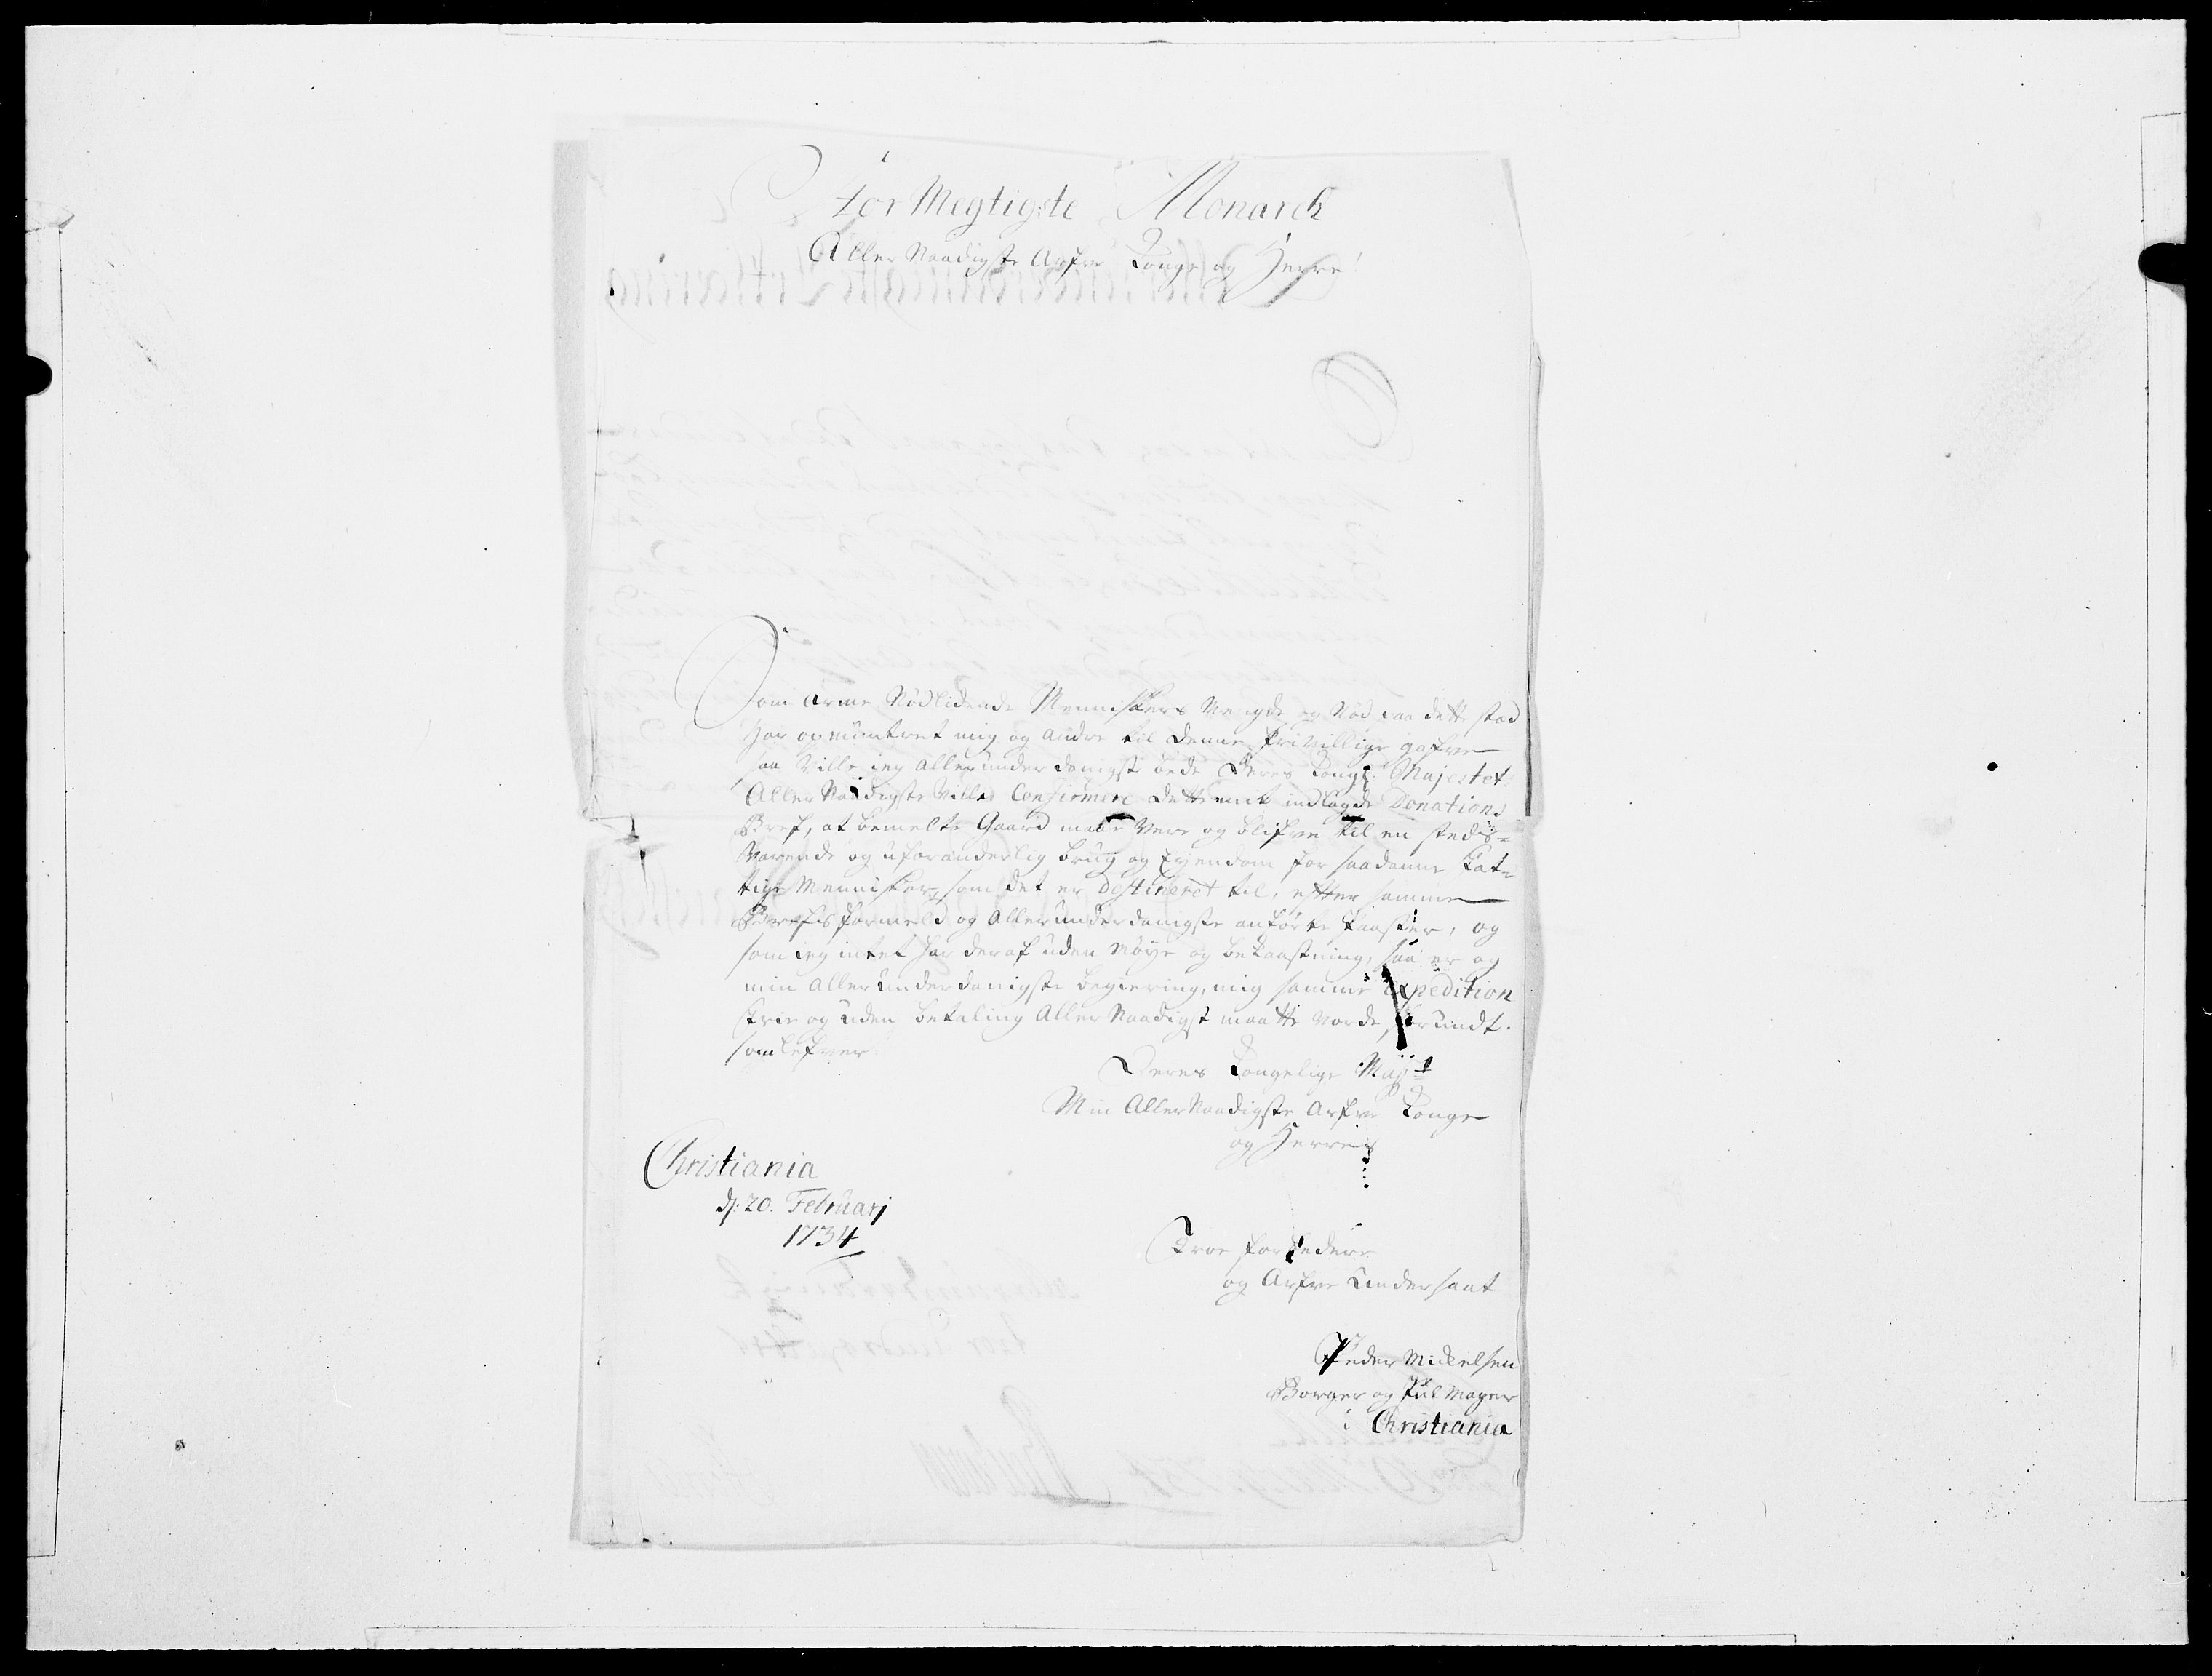 Stor Megtigste Monarck
Aller Naadigste Arfve Konge og Herre!
Som Arme Nødlidende Menniskers Mengde og Nød paa dette stad
har opmuntret mig og andre til denne frivillige gafve
saa Ville ieg allerunderdanigst bede Deres Kongl: Majestet
Aller Naadigste Ville Confirmere dette mit indlagde Donations
Bref, at bemelte Gaard maae Være og blifve til en steds=
Warende og uforanderlig brug og Eyendom for saadanne Fat=
tige Mennisker, som det er destineret til, efter samme
Brefs formeld og Allerunderdanigste anførte Poster, og
som ieg intet har deraf uden Møye og bekaastning, saa er og
min Allerunderdanigste begiering, mig samme Expedition
frie og uden betaling Aller Naadigst maatte vorde forundt.
som lefver
Deres Kongelige Maj:t
Min Aller Naadigste Arfve Konge
og Herris
Christiania
d: 20. Februarj
1734
Troe forpligte
og Arfve Undersaat
Peder Mickelsen
Borger og Mager
i Christiania